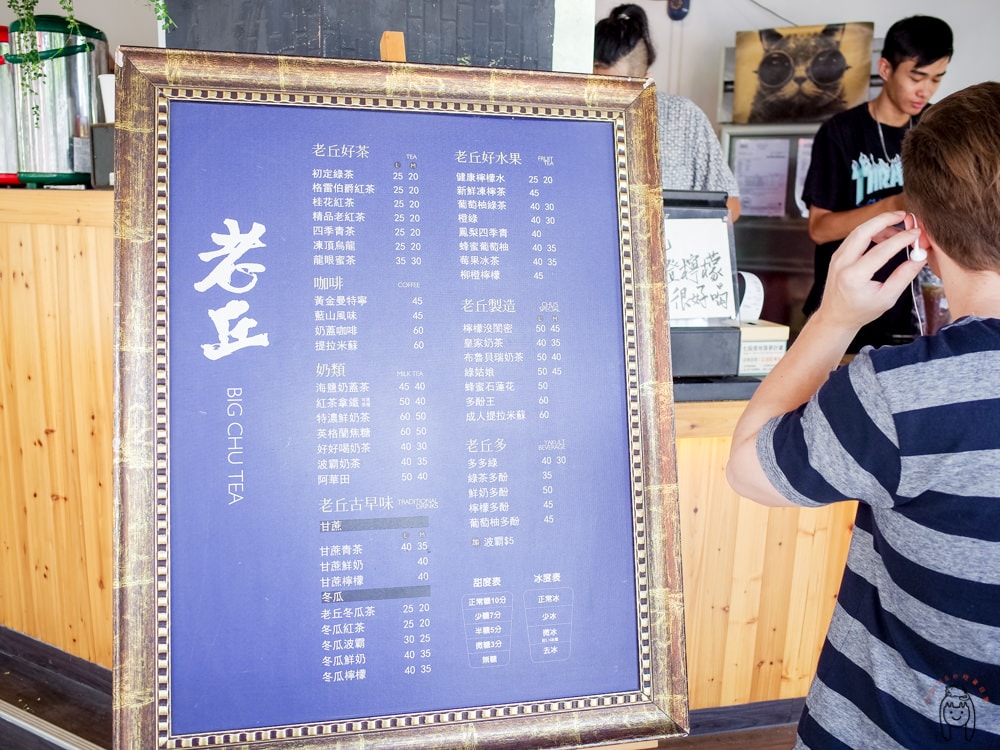 老丘
BIG CHU TEA
老丘好茶 TEA
L M
初定綠茶 25 20
格雷伯爵紅茶 25 20
桂花紅茶 25 20
精品老紅茶 25 20
四季青茶 25 20
凍頂烏龍 25 20
龍眼蜜茶 35 30
咖啡 COFFEE
黃金曼特寧 45
藍山風味 45
奶蓋咖啡 60
提拉米蘇 60
奶類 MILK TEA
海鹽奶蓋茶 45 40
紅茶拿鐵 50 40
特濃鮮奶茶 60 50
英格蘭焦糖 60 50
好好喝奶茶 40 35
波霸奶茶 40 35
阿華田 50 40
老丘古早味 TRADITIONAL DRINKS
甘蔗
L M
甘蔗青茶 40 35
甘蔗鮮奶 40
甘蔗檸檬 40
冬瓜
老丘冬瓜茶 25 20
冬瓜紅茶 25 20
冬瓜波霸 30 25
冬瓜鮮奶 40 35
冬瓜檸檬 40 35
老丘好水果 FRUIT TEA
健康檸檬水 25 20
新鮮凍檸茶 45
葡萄柚綠茶 40 30
橙綠 40 30
鳳梨四季青 40
蜂蜜葡萄柚 40 35
莓果冰茶 40 35
柳橙檸檬 45
老丘製造
L M
檸檬沒閨密 50 45
皇家奶茶 40 35
布魯貝瑞奶茶 50 40
綠姑娘 50 45
蜂蜜石蓮花 50
多酚王 60
成人提拉米蘇 60
老丘多
BEVERAGE
多多綠 40 30
綠茶多酚 35
鮮奶多酚 50
檸檬多酚 45
葡萄柚多酚 45
加 波霸$5
甜度表
正常糖10分
少糖7分
半糖5分
微糖3分
無糖
冰度表
正常冰
少冰
微冰
去冰
檸檬
很好喝
THRA